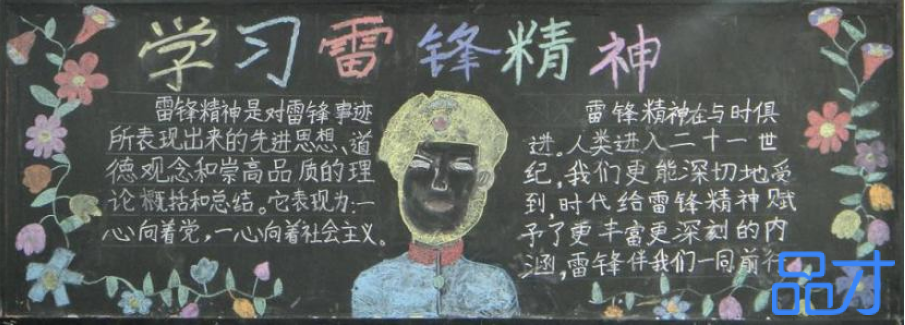 学习雷锋精神
雷锋精神是对雷锋事迹
所表现出来的先进思想、道
德观念和崇高品质的理
论概括和总结。它表现为:一
心向着党,一心向着社会主义。
雷锋精神在与时俱
进。人类进入二十一世
纪,我们更能深切地爱
到,时代给雷锋精神赋
予了更丰富更深刻的内
涵,雷锋伴我们一同前行
品才